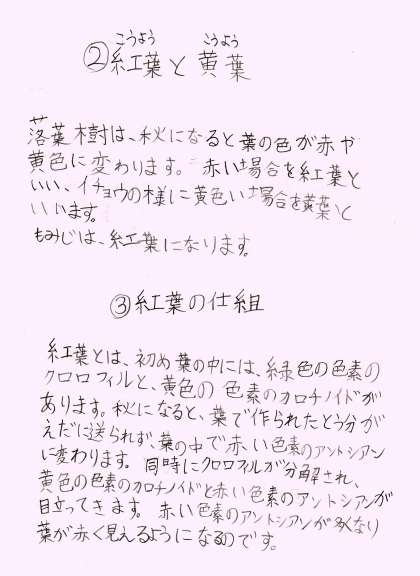 こうよう こうよう
②紅葉と黄葉
落葉樹は、秋になると葉の色が赤や
黄色に変わります。赤い場合を紅葉と
いい、イチョウの様に黄色い場合を黄葉と
いいます。
もみじは、紅葉になります。
③紅葉の仕組
紅葉とは、初め葉の中には、緑色の色素の
クロロフィルと、黄色の色素のカロチノイドが
あります。秋になると、葉で作られたとう分が
えだに送られず、葉の中で赤い色素のアントシアン
に変わります。同時にクロロフィルが分解され、
黄色の色素のカロチノイドと赤い色素のアントシアンが
目立ってきます。赤い色素のアントシアンが多くなり
葉が赤く見えるようになるのです。